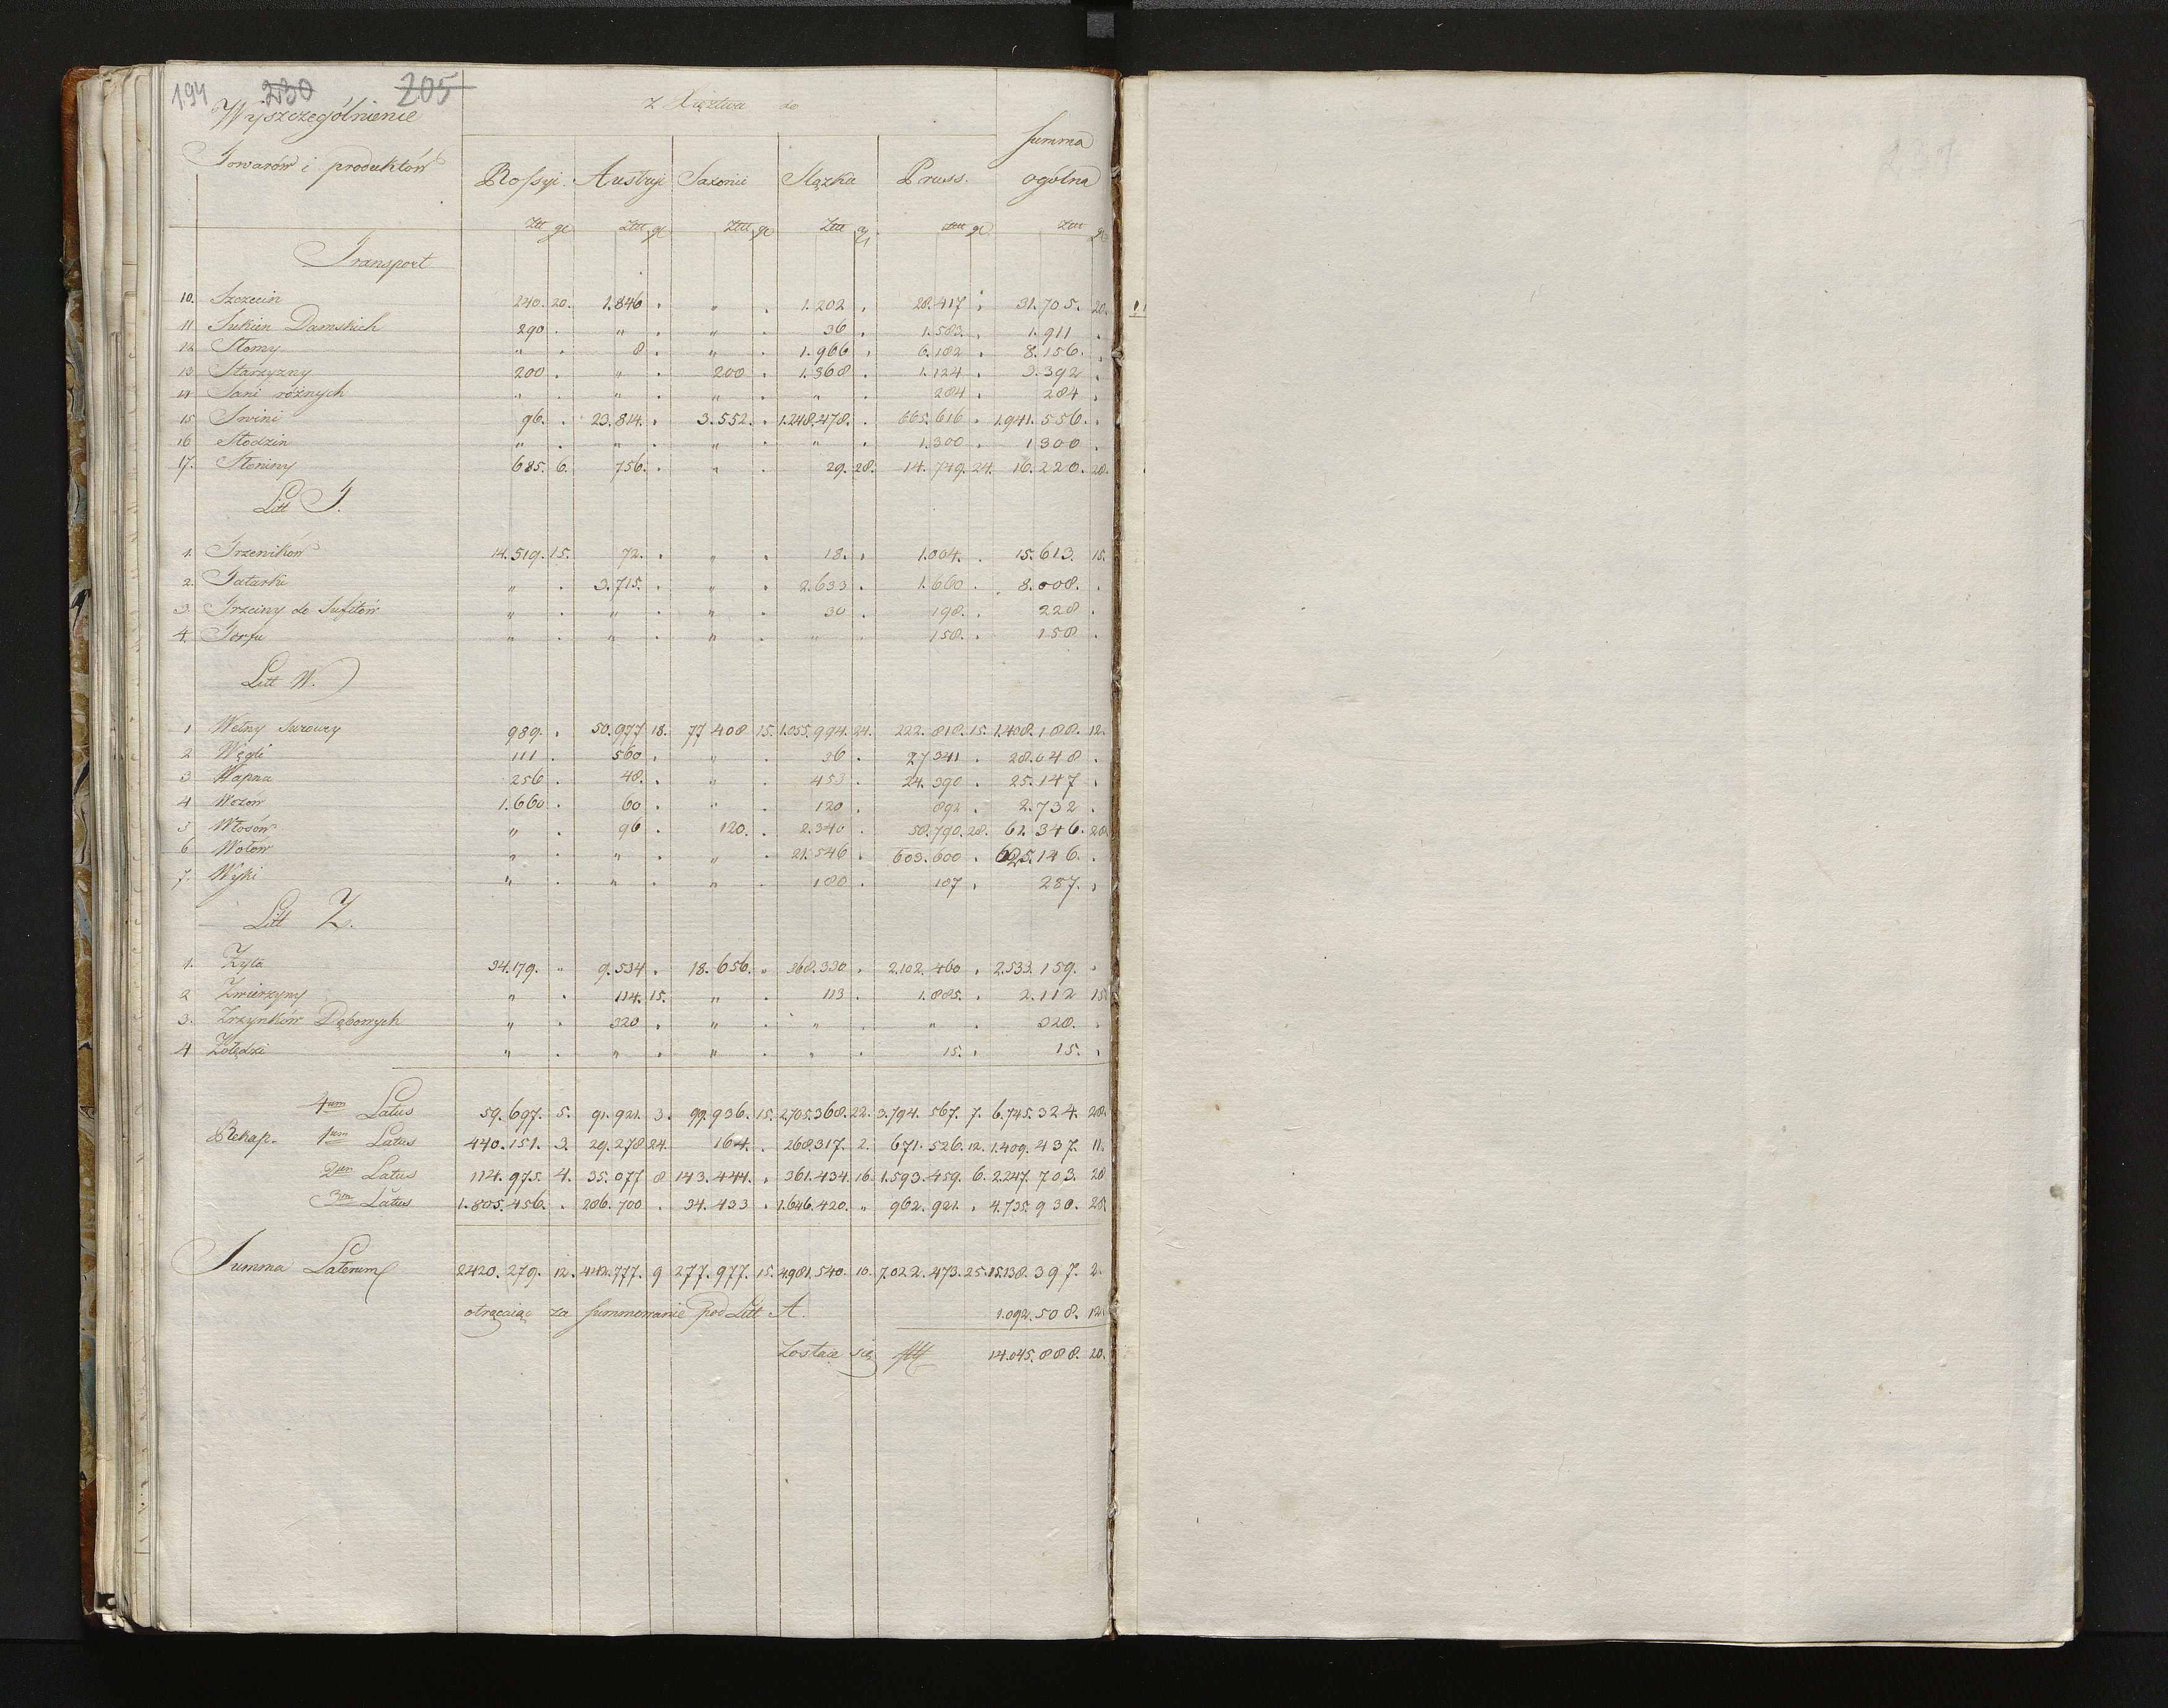 194 230 205
Wyszczególnienie Z Xięztwa do
Summa
Towarów i produktów Rossyi. Austryi Saxonii Slązka Pruss. ogólna
Ztt gr Ztt gr Ztt gr Ztt gr Ztt gr Ztt gr
Transport
10. Szczecin 240. 20. 1.846 . " . 1.202 . 28.417 . 31.705. 20.
11 Sukien Damskich 290 . " . " . 36 . 1.583. . 1.911 .
12 Słomy " . 8 . " . 1.966 . 6.182 . 8.156. .
13 Starzyzny 200 . " . 200 . 1.868 . 1.124 . 3.392 .
14 Sani różnych " . " . " . " . 284 . 284 .
15 Swini 96. . 23.814. . 3.552. . 1.248.478. . 665.616 . 1.941.556. .
16 Słodzin " . " . " . " . 1.300 . 1300 .
17. Słoniny 685. 6. 756. . " . 29. 28. 14.749. 24. 16.220. 28.
Litt T.
1. Trzewików 14.519. 15. 72. . " . 18. . 1.004. . 15.613. 15.
2. Tatarki " . 3.715. . " . 2.633 . 1.660 . 8.008. .
3. Trzciny do Sufitów " . " . " . 30 . 198. . 228 .
4. Torfu " . " . " . " . 158. . 158 .
Litt W.
1 Wełny Surowey 989. . 50.977 18. 77 408 15. 1.055.994. 24. 222.818. 15. 1.408.188. 12.
2 Węgli 111 . 560 . " . 36 . 27 341 . 28.048 .
3 Wapna 256 . 48. . " . 453 . 24.390 . 25.147 .
4 Wozów 1.660 . 60 . " . 120 . 892 . 2.732 .
5 Włosów " . 96 . 120. . 2.340 . 58.790. 28. 61.346. 28.
6 Wołów " . " . " . 21.546 . 603.600 . 625.146. .
7. Wyki " . " . " . 180 . 107 . 287. .
Litt Z.
1. Zyta 34.179. " 9.534 . 18.656. " 368.330 . 2.102.460 . 2.533.159. "
2 Zwierzyny " . 114. 15. " . 113 . 1.885. . 2.112 15
3. Zrzynków Dębowych " . 320 . " . " . " . 320. .
4 Zołędzi " . " . " . " . 15. . 15. .
4um Latus 59.697. 5. 91.921. 3. 99.936. 15. 2705.368. 22. 3.794.567. 7. 6.745.324. 28.
Rekap. 1um Latus 440.151. 3. 29.278 24. 164. . 268.317. 2. 671.526. 12. 1.409.437. 11.
2um Latus 114.975. 4. 35.077 8 143.444. . 361.434. 16 1.593.459. 6. 2.247.703. 20
3um Latus 1.805.456. . 286.700 . 34.433 . 1.646.420. " 962.921. . 4.735.930. 28.
Summa Laterum 2420.279. 12. 442.777. 9 277.977. 15. 4.981.540. 10. 7.022.473. 25. 15.138.397. 2.
otrącaiąc za summowanie pod Litt A. 1.092.508. 12.
Zostaie się 14.045.888. 20.